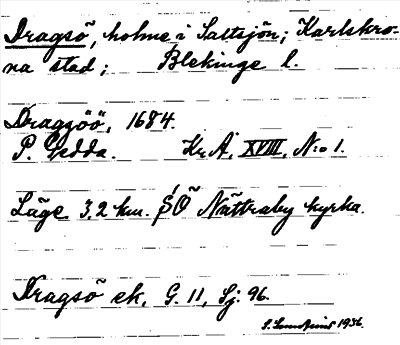 Dragsö, holme i Saltsjön; Karlskro-
na stad; Blekinge l.
Dragzöö, 1684.
P. Gedda. Kr. A. XVIII, N:o 1.
Läge 3,2 km. SO Nättraby kyrka.
Dragsö ek. G. 11, Sj: 96.
1936.